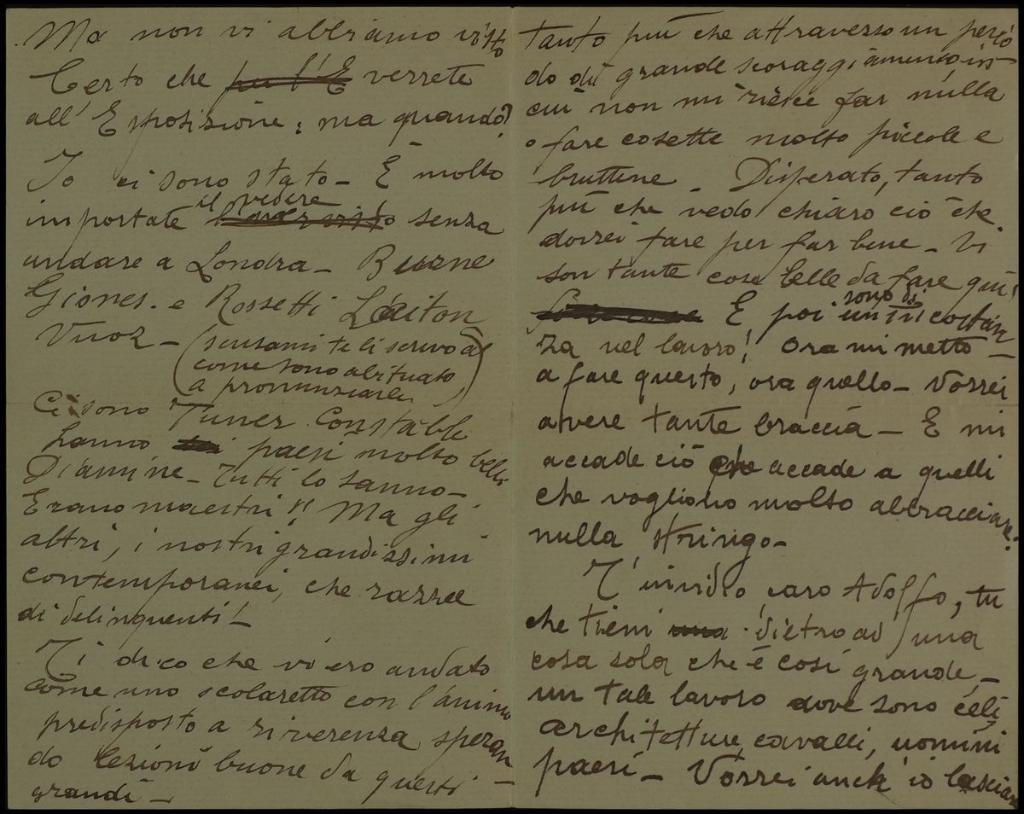 Ma non vi abbiamo visto
Certo che per l'E verrete
all'Esposizione; ma quando?
Io ci sono stato – È molto
il vedere
importate senza
andare a Londra – Burne
Giones. e Rossetti Laiton
Vuoz – (scusami te li scrivo
come sono abituato
a pronunziarli)
Ci sono Tuner Constable
hanno paesi molto belli
Diamine – Tutti lo sanno –
Erano maestri!! Ma gli
altri, i nostri grandissimi
contemporanei, che razza
di delinquenti! –
Ti dico che vi ero andato
come uno scolaretto con l'animo
predisposto a riverenza speran-
do lezioni buone da questi
grandi –
tanto più che attraverso un perio
do di grande scoraggiamento in
cui non mi riesce far nulla
o fare cosette molto piccole e
bruttine – Disperato, tanto
più che vedo chiaro ciò che
dovrei fare per far bene – Vi
son tante cose belle da fare qui!
sono di
E poi un'incostan
za nel lavoro! Ora mi metto –
a fare questo, ora quello – Vorrei
avere tante braccia – E mi
accade ciò che accade a quelli
che vogliono molto abbracciare:
nulla stringo –
T'invidio, caro Adolfo, tu
che tieni una dietro ad una
cosa sola che è così grande –
un tale lavoro dove sono cieli,
architetture, cavalli, uomini
paesi – Vorrei anch'io lasciare